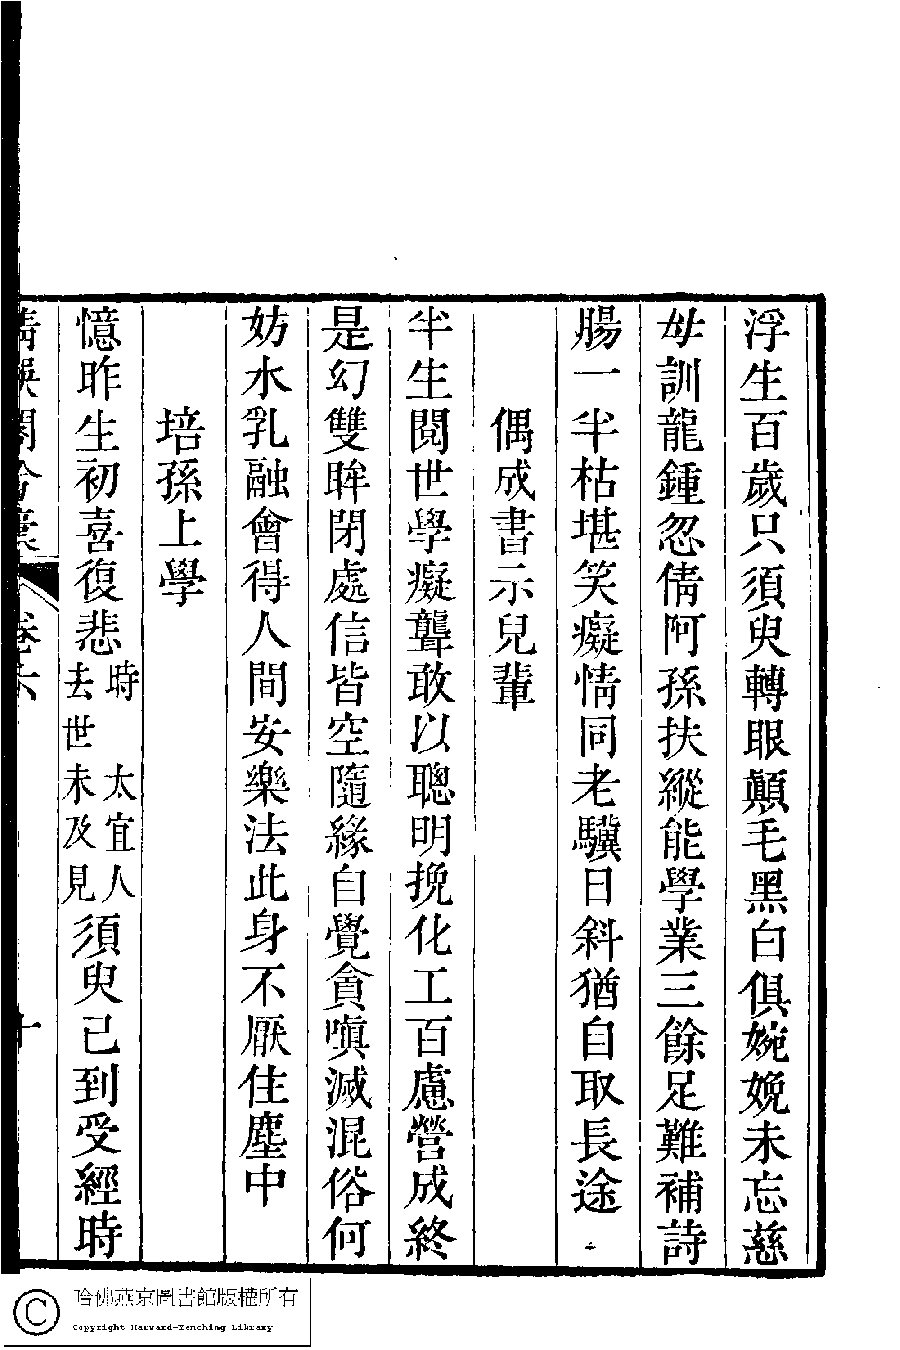 浮生百歲只須臾轉眼顛毛黑白俱婉娩未忘慈
母訓龍鍾忽倩阿孫扶縱能學業三餘足難補詩
腸一半枯堪笑癡情同老驥日斜猶自取長途
偶成書示兒輩
半生閱世學癡聾敢以聰明挽化工百慮營成終
是幻雙眸閉處信皆空隨緣自覺貪嗔滅混俗何
妨水乳融會得人間安樂法此身不厭住塵中
培孫上學
憶昨生初喜復悲時太宜人去世未及見須臾已到受經時
卷六
十
哈佛燕京圖書館版權所有
Copyright Harvard-Yenching Library